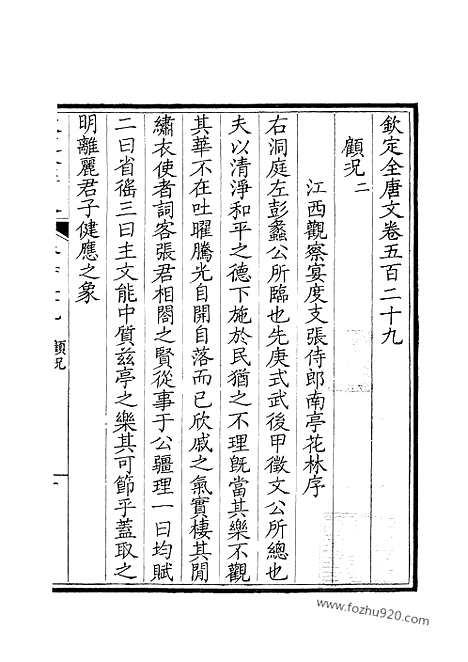 欽定全唐文卷五百二十九
顧況二
江西觀察宴度支張侍郎南亭花林序
右洞庭左彭蠡公所臨也先庚式武後甲徵文公所總也
夫以清淨和平之德下施於民猶之不理旣當其樂不觀
其華不在吐曜騰光自開自落而已欣戚之氣實棲其間
繡衣使者詞客張君相閤之賢從事于公疆理一曰均賦
二曰省徭三曰主文能中質兹亭之樂其可節乎蓋取之
明離麗君子健應之象
顧況
www.fozhu920.com